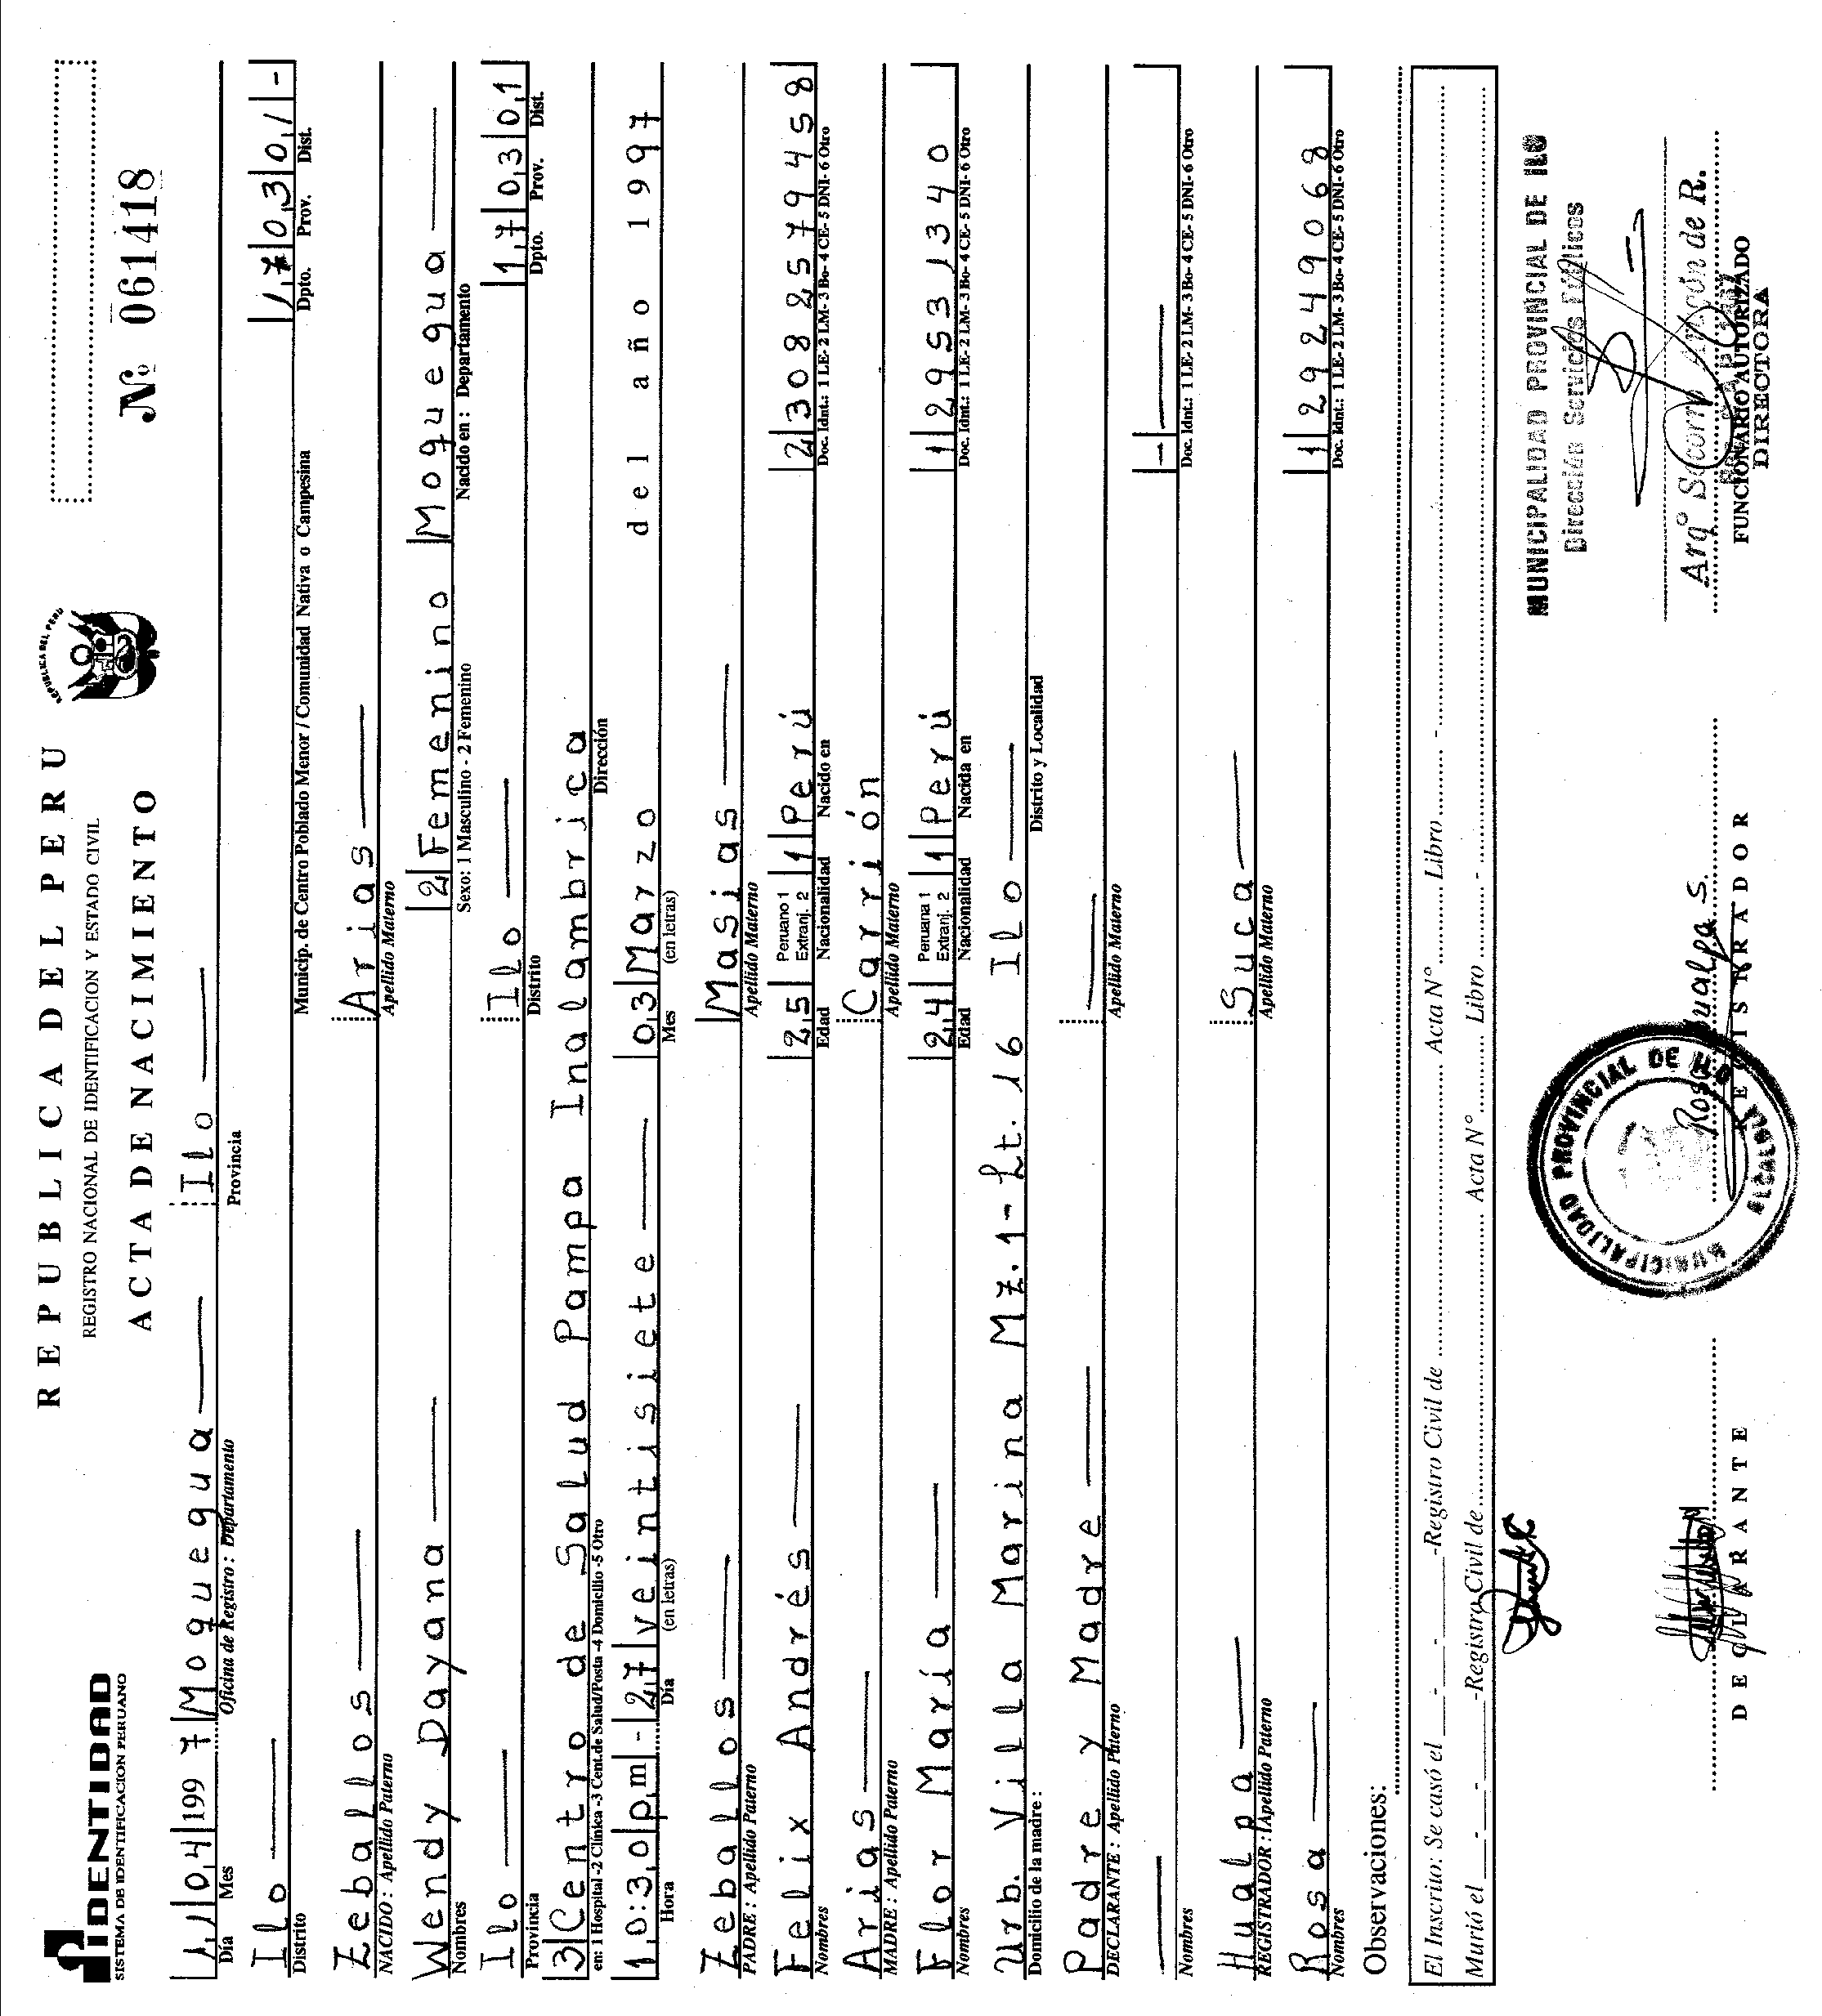 IDENTIDAD
SISTEMA DE IDENTIFICACION PERUANO
REPUBLICA DEL PERU
REGISTRO NACIONAL DE IDENTIFICACION Y ESTADO CIVIL
ACTA DE NACIMIENTO
REPUBLICA DEL PERU
Nº 061418
1,1 0,4 199 7 Moquegua Ilo
Día Mes Oficina de Registro : Departamento Provincia
Ilo 1,7 0,3 0,1 -
Distrito Municip. de Centro Poblado Menor / Comunidad Nativa o Campesina Dpto. Prov. Dist.
Zeballos Arias
NACIDO : Apellido Paterno Apellido Materno
Wendy Dayana 2 Femenino Moquegua
Nombres Sexo: 1 Masculino - 2 Femenino Nacido en : Departamento
Ilo Ilo 1,7 0,3 0,1
Provincia Distrito Dpto. Prov. Dist.
3 Centro de Salud Pampa Inalambrica
en: 1 Hospital -2 Clínica -3 Cent.de Salud/Posta -4 Domicilio -5 Otro Dirección
1,0:3,0 p,m - 2,7 veintisiete 0,3 Marzo del año 1997
Hora Día (en letras) Mes (en letras)
Zeballos Masias
PADRE : Apellido Paterno Apellido Materno
Felix Andrés 2,5 Peruano 1 Extranj. 2 1 Perú 2 3082579458
Nombres Edad Nacionalidad Nacido en Doc. Idnt.: 1 LE- 2 LM- 3 Bo- 4 CE- 5 DNI- 6 Otro
Arias Carrión
MADRE : Apellido Paterno Apellido Materno
Flor María 2,4 Peruana 1 Extranj. 2 1 Perú 1 29531340
Nombres Edad Nacionalidad Nacida en Doc. Idnt.: 1 LE- 2 LM- 3 Bo- 4 CE- 5 DNI- 6 Otro
Urb. Villa Marina Mz. 1 - Lt. 16 Ilo
Domicilio de la madre : Distrito y Localidad
Padre y Madre
DECLARANTE : Apellido Paterno Apellido Materno
Nombres Doc. Idnt.: 1 LE- 2 LM- 3 Bo- 4 CE- 5 DNI- 6 Otro
Hualpa Suca
REGISTRADOR : Apellido Paterno Apellido Materno
Rosa 1 29249068
Nombres Doc. Idnt.: 1 LE- 2 LM- 3 Bo- 4 CE- 5 DNI- 6 Otro
Observaciones:
El Inscrito: Se casó el - - -Registro Civil de Acta N° Libro -
Murió el - - -Registro Civil de Acta N° Libro -
MUNICIPALIDAD PROVINCIAL DE ILO
Dirección Servicios Públicos
MUNICIPALIDAD PROVINCIAL DE ILO
ALCALDIA
Rosa Hualpa S.
Arqº Socorro Angón de R.
DECLARANTE REGISTRADOR FUNCIONARIO AUTORIZADO
DIRECTORA